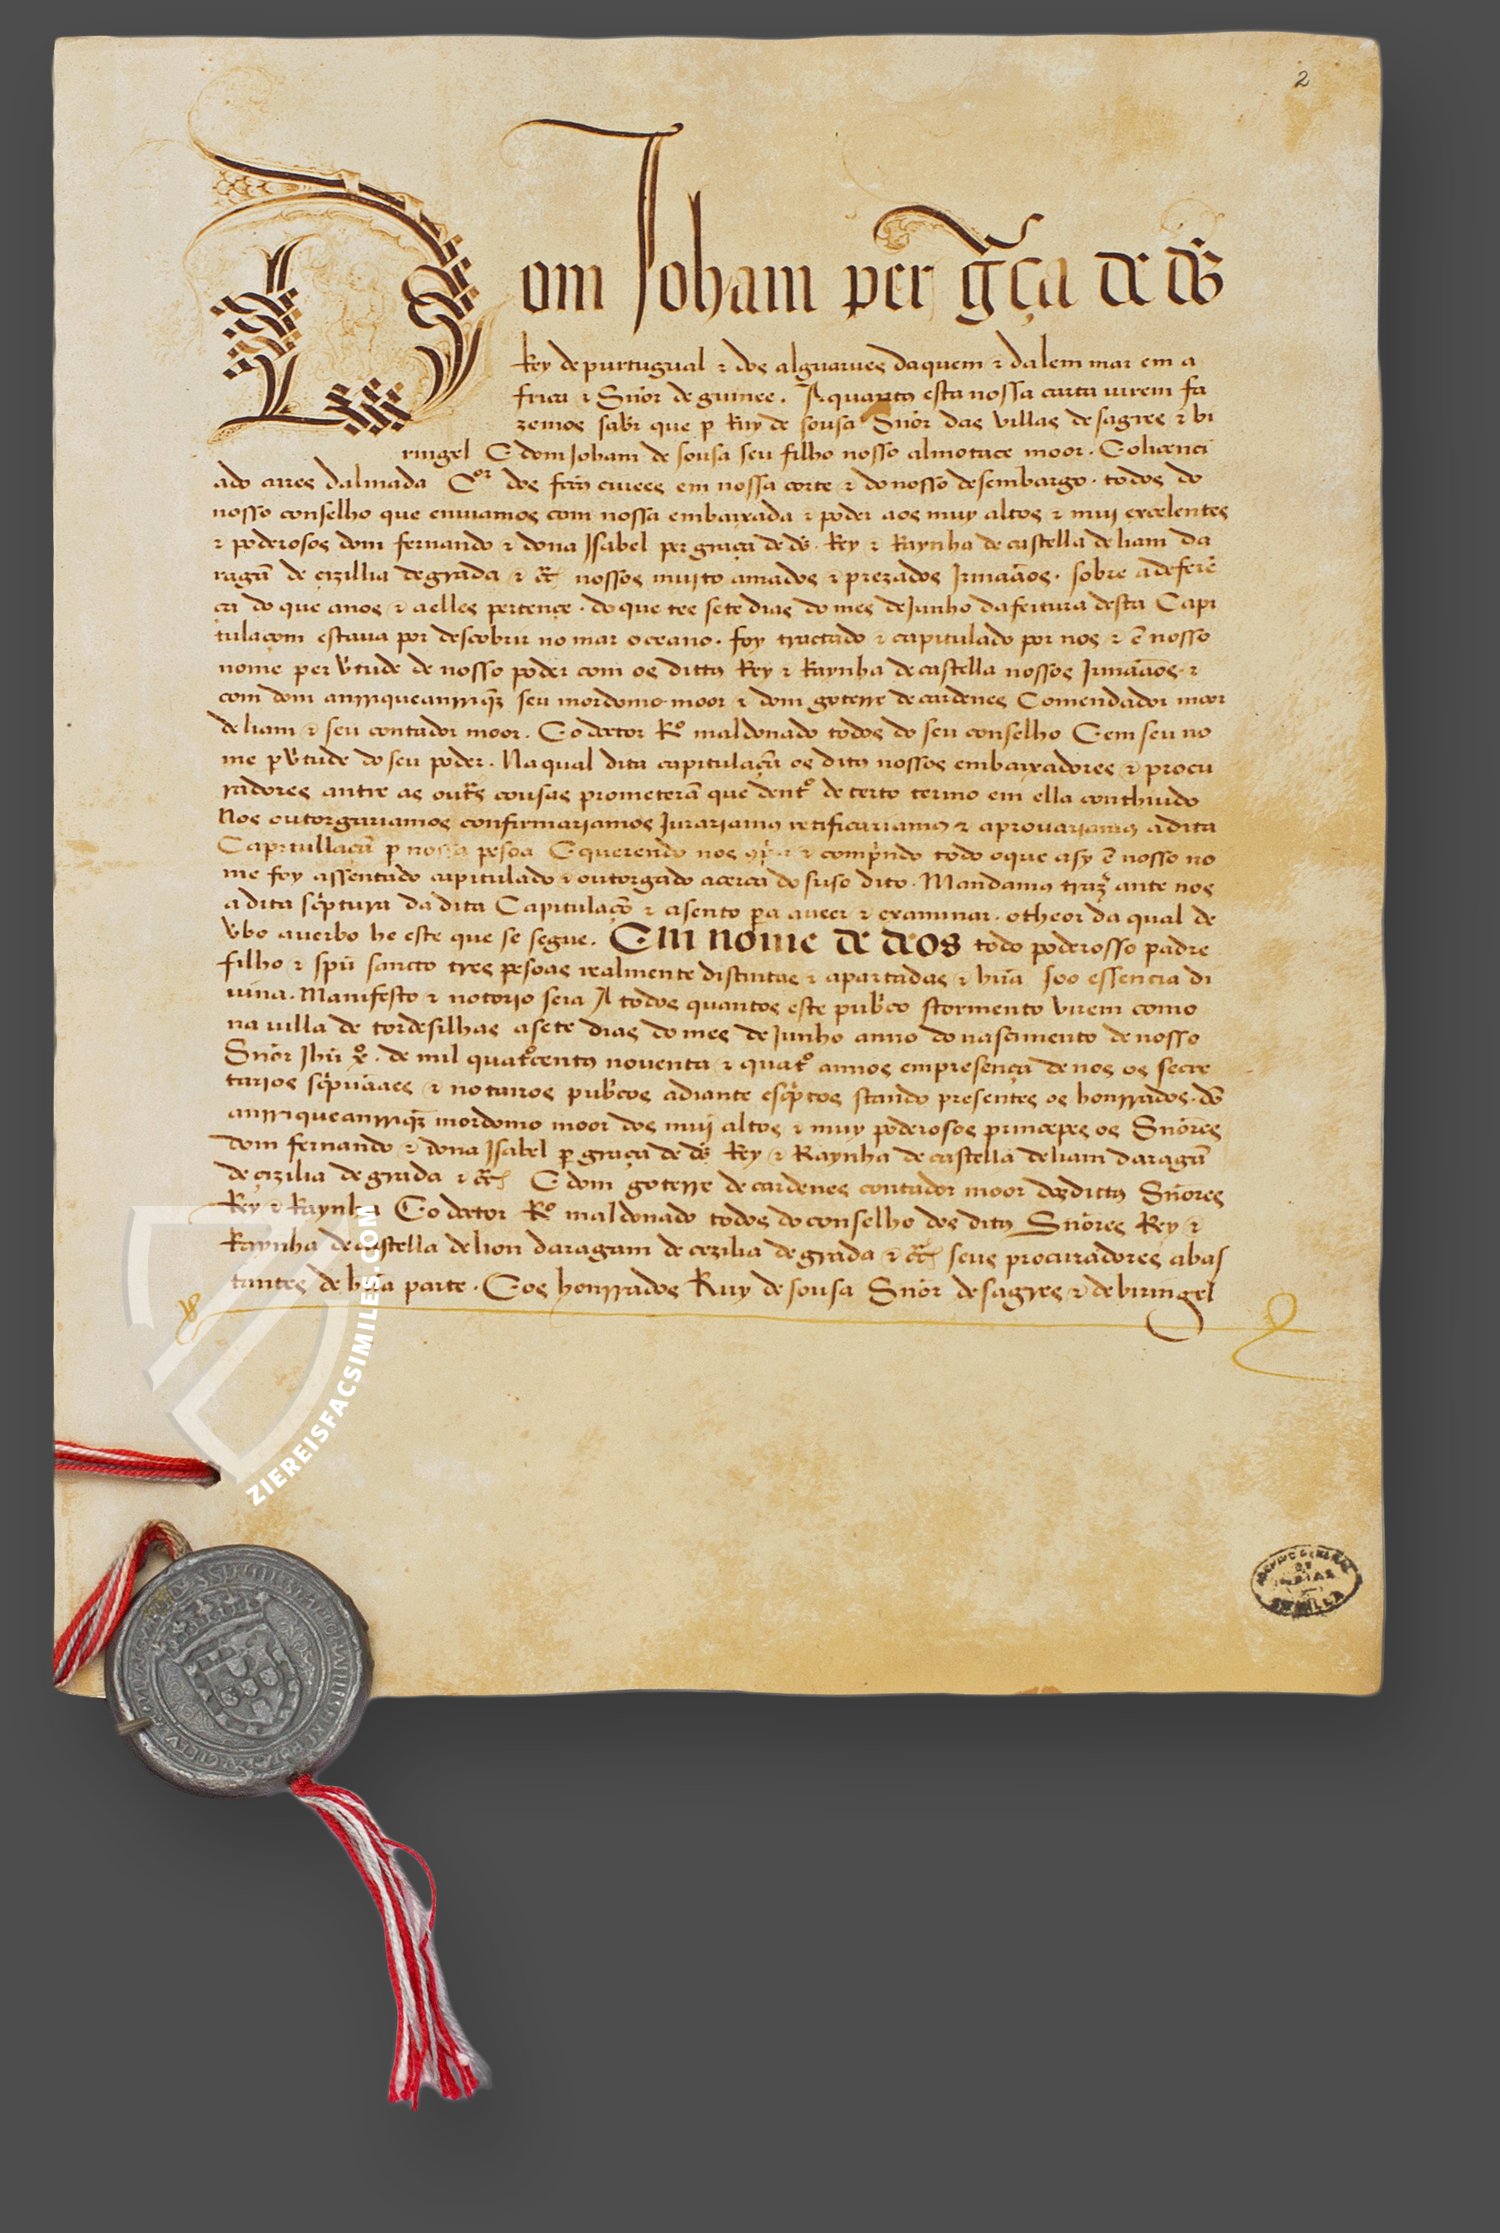 2
Dom Joham per gr̃ça de ds̃
Rey de purtugual ⁊ dos alguarues daquem ⁊ dalem mar em a
frica ⁊ Sñor de guinee. A quantos esta nossa carta virem fa
zemos sabr̃ que p Ruy de sousa Sñor das villas de sagres ⁊ bi
ringel E dom Joham de sousa seu filho nosso almotace moor. E o licenci
ado aires dalmada Cor dos em nossa corte ⁊ do nosso desembargo. todos do
nosso conselho que enviamos com nossa embaixada ⁊ poder aos muy altos ⁊ mui excelentes
⁊ poderosos dom fernando ⁊ dona Isabel per graça de ds̃. Rey ⁊ Raynha de castella de liam da
ragã de cizillia de grãda ⁊ cr̃ nossos muito amados ⁊ prezados Irmãaos. sobre a deferẽ
ça do que a nos ⁊ a elles pertençe. do que tee sete dias do mes de Junho da feitura desta Capi
tulaçom estaua por descobrir no mar oceano. foy tractado ⁊ capitulado por nos ⁊ ẽ nosso
nome per v̾tude de nosso poder com os dittos Rey ⁊ Raynha de castella nossos Irmãaos ⁊
com dom anrrique anrriq̃z seu mordomo moor ⁊ dom goterre de cardenes Comendador moor
de liam ⁊ seu contador moor. E o doctor Rº maldonado todos do seu conselho E em seu no
me p v̾tude do seu poder. Na qual dita capitulaçã os ditos nossos embaixadores ⁊ procu
radores antre as outr̃s cousas prometerã que dentº de certo termo em ella conthiudo
Nos outorgariamos confirmariamos Jurariamos retificariamos ⁊ aprouariamos a dita
Capitullaçã p nossa pesoa E querendo nos ⁊ comprindo todo o que asy ẽ nosso no
me foy assentado capitulado ⁊ outorgado acerca do suso dito. Mandamos traz̃ ante nos
a dita scp̃tura da dita Capitulaçõ ⁊ asento pa a veer ⁊ examinar. o theor da qual de
v̾bo a verbo he este que se segue. Em nome de deos todo poderosso padre
filho ⁊ spũ sancto tres pesoas realmente distintas ⁊ apartadas ⁊ hũa soo essencia di
uina. Manifesto ⁊ notorio seia A todos quantos este pub̾co stormento virem como
na villa de tordesilhas a sete dias do mes de Junho anno do nascimento de nosso
Sñor Jhũ xº. de mil quatºcentos noventa ⁊ quatº annos em presença de nos os secre
tarios scp̃vãaes ⁊ notairos pub̾cos adiante escp̃tos stando presentes os honrrados. dõ
anrrique anrriq̃z mordomo moor dos mui altos ⁊ muy poderosos principes os Sñores
dom fernando ⁊ dona Isabel p graça de ds̃ Rey ⁊ Raynha de castella de liam daragã
de cizilia de grada ⁊ cr̃ E dom goterre de cardenes contador moor dos dittos Sñores
Rey ⁊ Raynha E o doctor Rº maldonado todos do conselho dos ditos Sñores Rey ⁊
Raynha de castella de lion daragam de cezilia de grada ⁊ cr̃ seus procuradores abas
tantes de hũa parte. E os honrrados Ruy de sousa Sñor de sagres ⁊ de biringel
ZIEREISFACSIMILES.COM